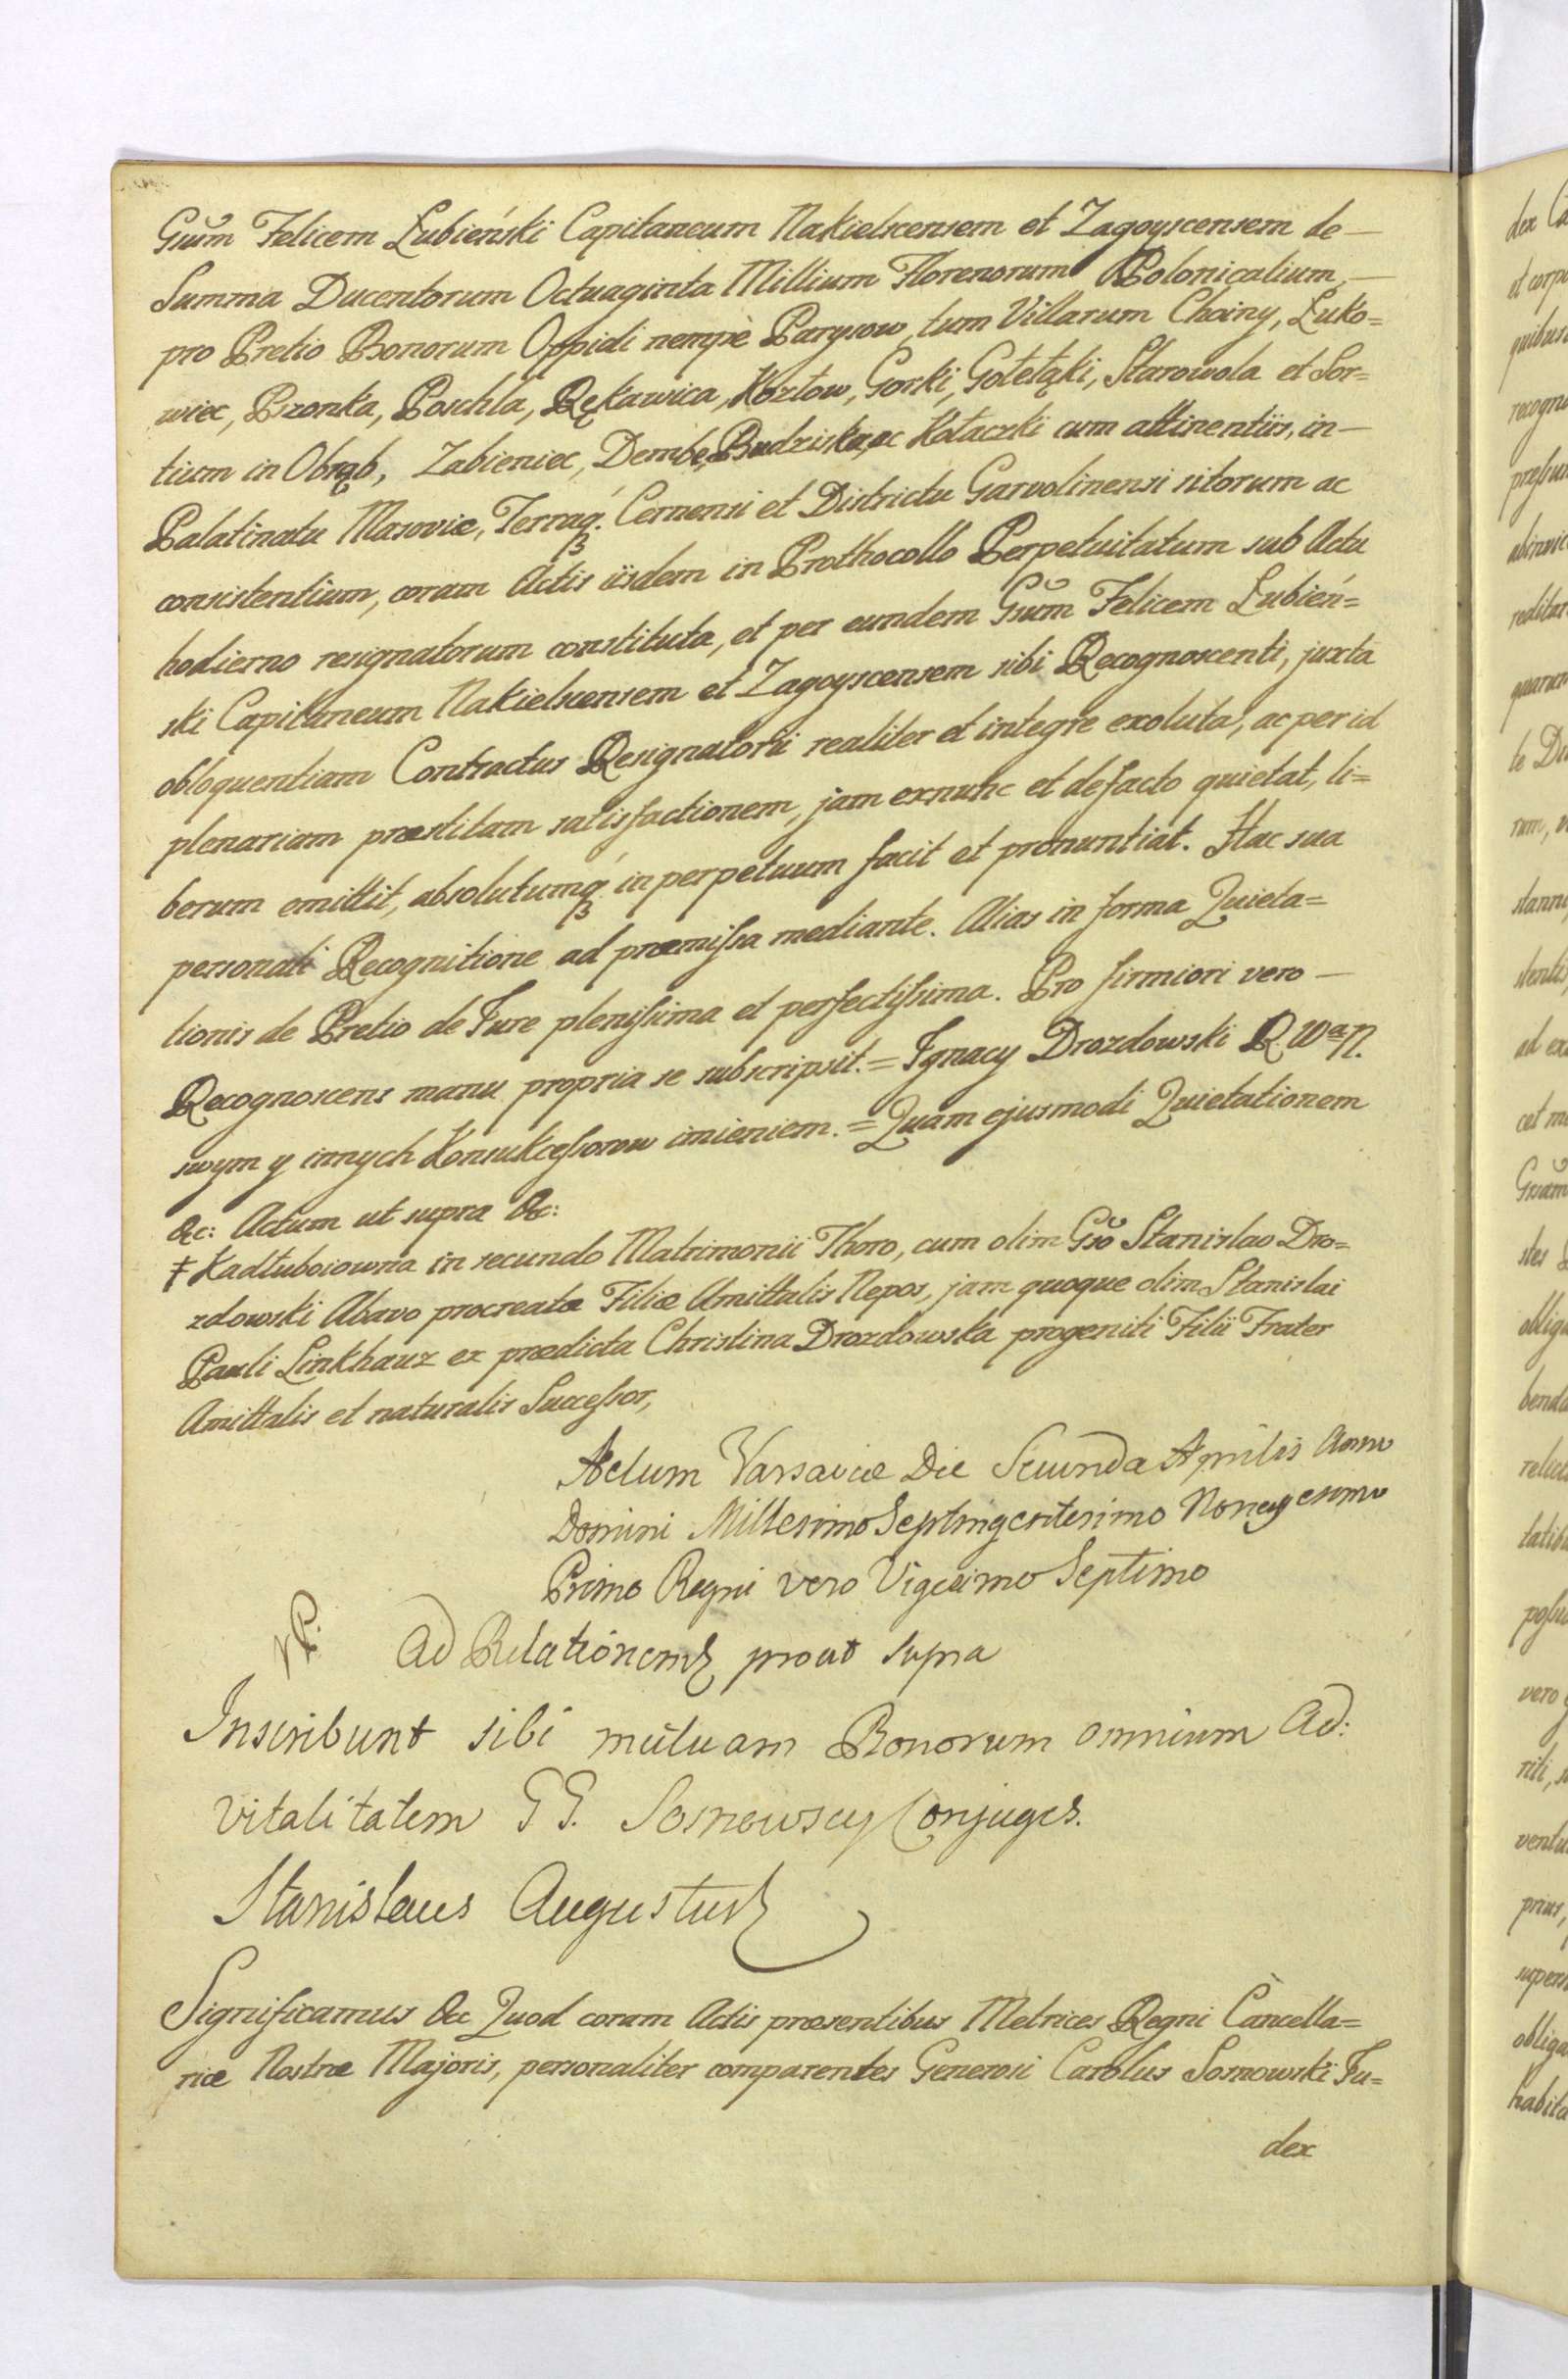 Gsum Felicem Łubieński Capitaneum Nakielscensem et Zagoyscensem de —
Summa Ducentorum Octuaginta Millium Florenorum Polonicalium, —
pro Pretio Bonorum Oppidi nempè Parysow, tum Villarum Choiny, Łuko=
wiec, Pzonka, Poschla, Rękawica, Kozłow, Gorki, Gołełąki, Starowola et Sor=
tium in Obrąb, Zabieniec, Dembe, Budziska, ac Kołaczki cum attinentiis, in —
Palatinatu Masoviæ, Terraq₃ Cernensi et Districtu Garvolinensi sitorum ac
consistentium, coram Actis iisdem in Prothocollo Perpetuitatum sub Actu
hodierno resignatorum constituta, et per eundem Gsum Felicem Łubień=
ski Capitaneum Nakielscensem et Zagoyscensem sibi Recognoscenti, juxta
obloquentiam Contractus Resignatorii realiter et integre exoluta, ac per id
plenariam præstitam satisfactionem, jam exnunc et defacto quietat, li=
berum emittit, absolutumq₃ in perpetuum facit et pronuntiat. Hac sua
personali Recognitione ad præmissa mediante. Alias in forma Quieta=
tionis de Pretio de Jure plenissima et perfectissima. Pro firmiori vero —
Recognoscens manu propria se subscripsit. = Ignacy Drozdowski R. W. N.
swym y innych Konsukcessorow imieniem. = Quam ejusmodi Quietationem
&c: Actum ut supra &c:
‡ Kadłuboiowna in secundo Matrimonii Thoro, cum olim Gso Stanislao Dro=
zdowski Abavo procreatæ Filiæ Amittalis Nepos, jam quoque olim Stanislai
Pauli Linkhauz ex prædicta Christina Drozdowska progeniti Filii Frater
Amittalis et naturalis Successor,
Actum Varsaviæ Die Secunda Aprilis Anno
Domini Millesimo Septingentesimo Nonagesimo
Primo Regni vero Vigesimo Septimo
Ad Relationem prout supra
Inscribunt sibi mutuam Bonorum omnium Ad:
vitalitatem G G. Sosnowscy Conjuges.
Stanislaus Augustus
Significamus &c Quod coram Actis præsentibus Metrices Regni Cancella=
riæ Nostræ Majoris, personaliter comparentes Generosi Carolus Sosnowski Ju=
dex